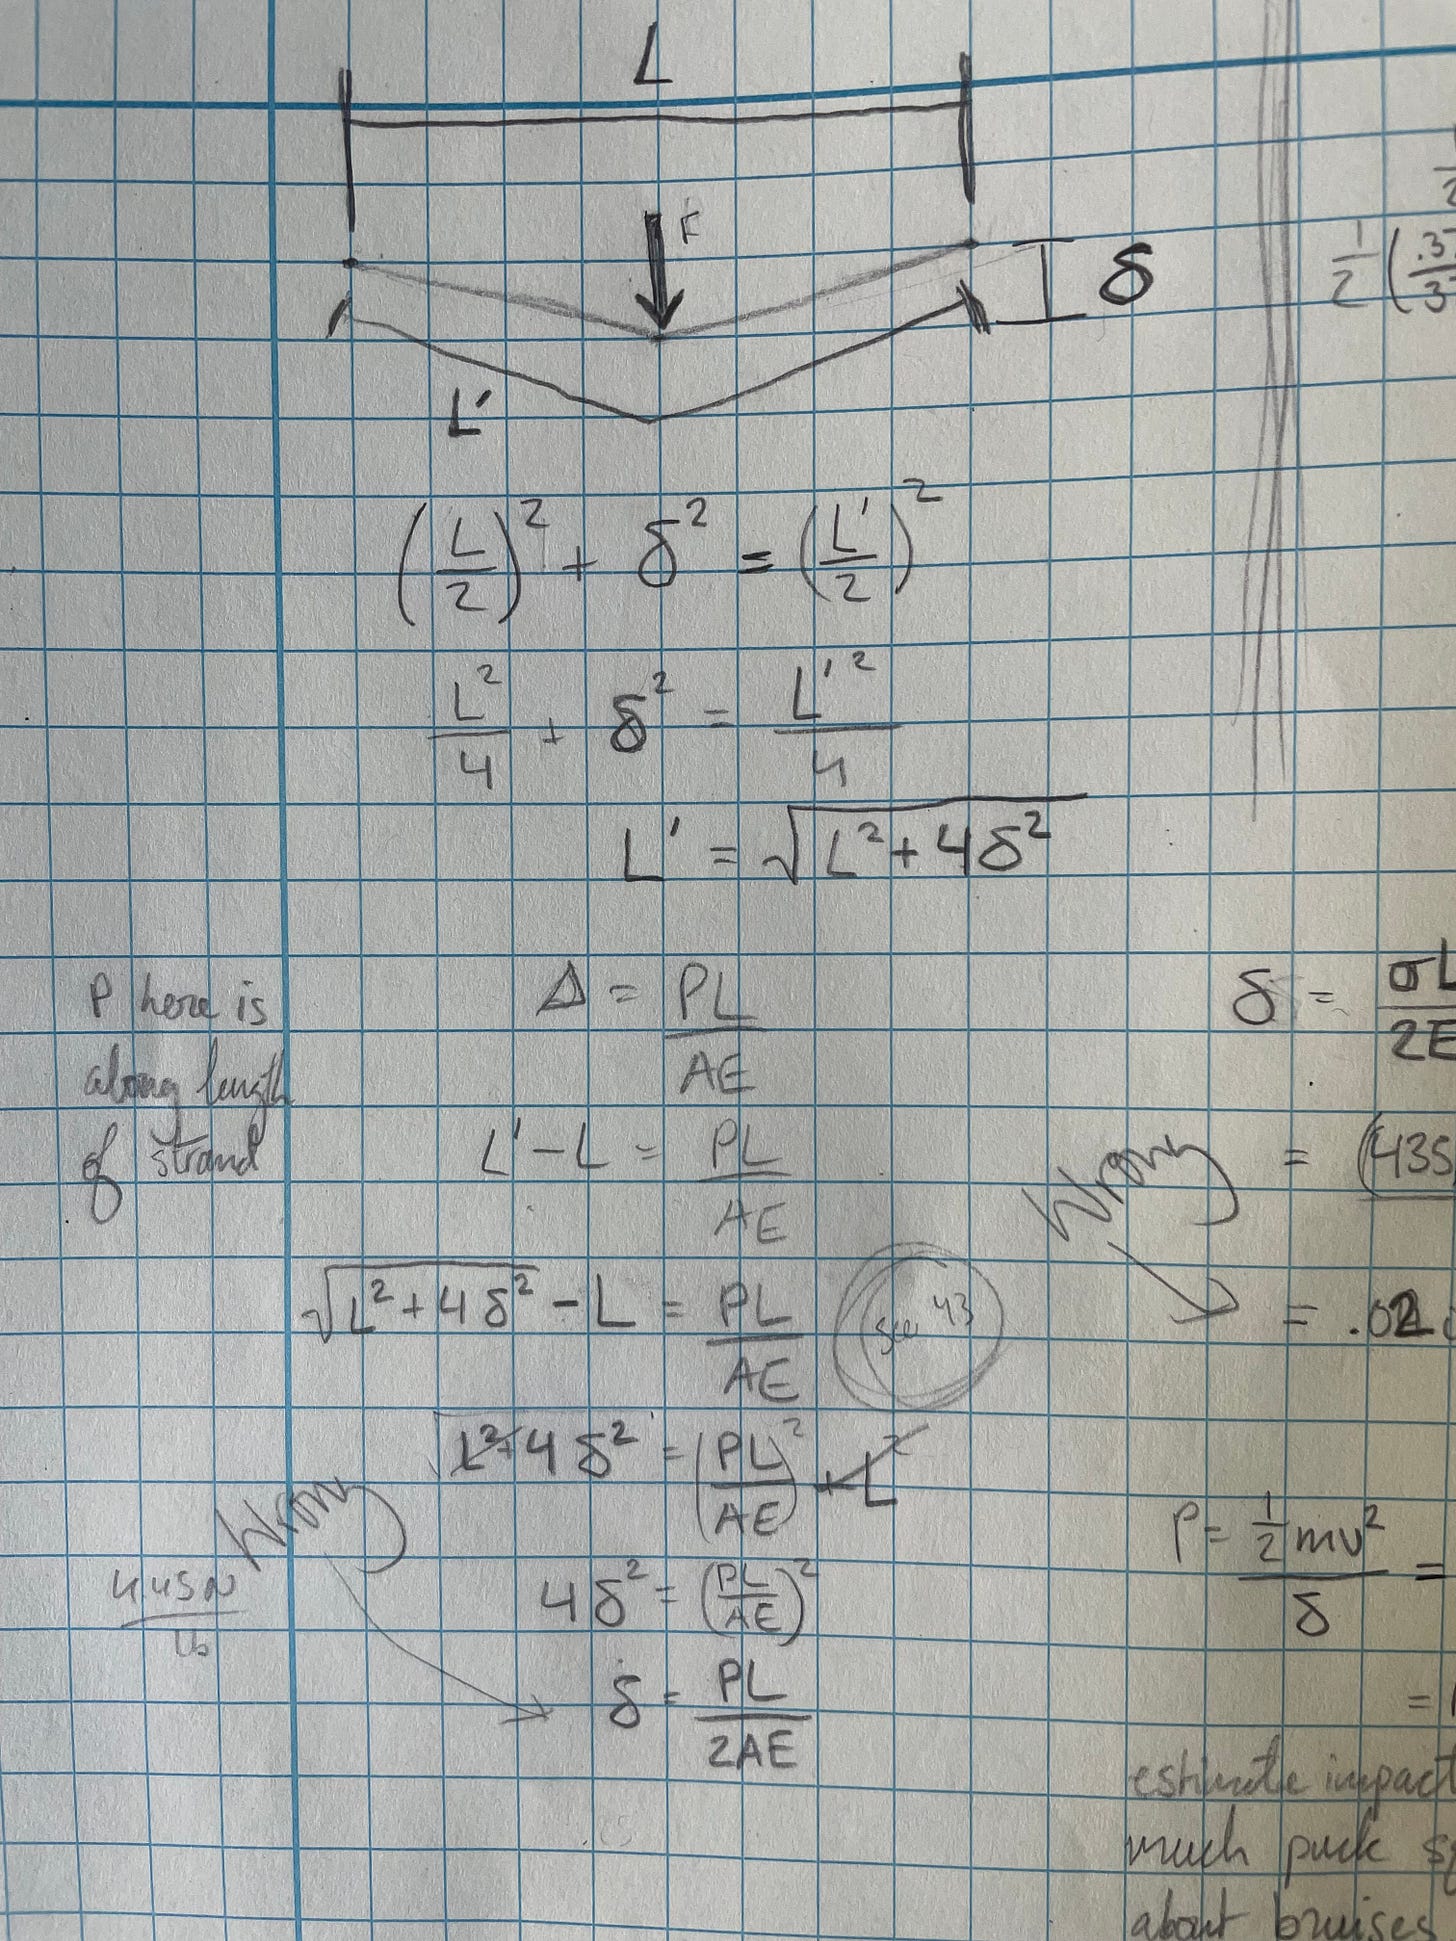 L
F
δ
L'
(L/2)² + δ² = (L'/2)²
L²/4 + δ² = L'²/4
L' = √(L² + 4δ²)
P here is
along length
of strand
Δ = PL/AE
L' - L = PL/AE
√(L² + 4δ²) - L = PL/AE
see 43
√(L² + 4δ²) = (PL/AE)² + L²
Wrong
4δ² = (PL/AE)²
δ = PL/2AE
1/2 (.37/3
δ = σL/2E
Wrong
= (435
= .02
P = ½mv²/δ =
=
estimate impact
much puck
about bruises